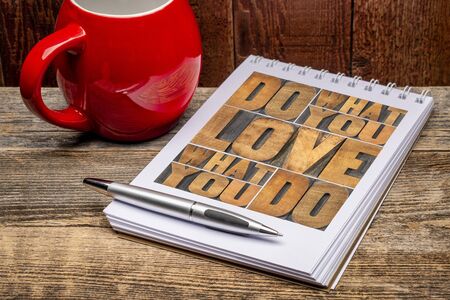 DO WHAT YOU
LOVE
WHAT YOU DO